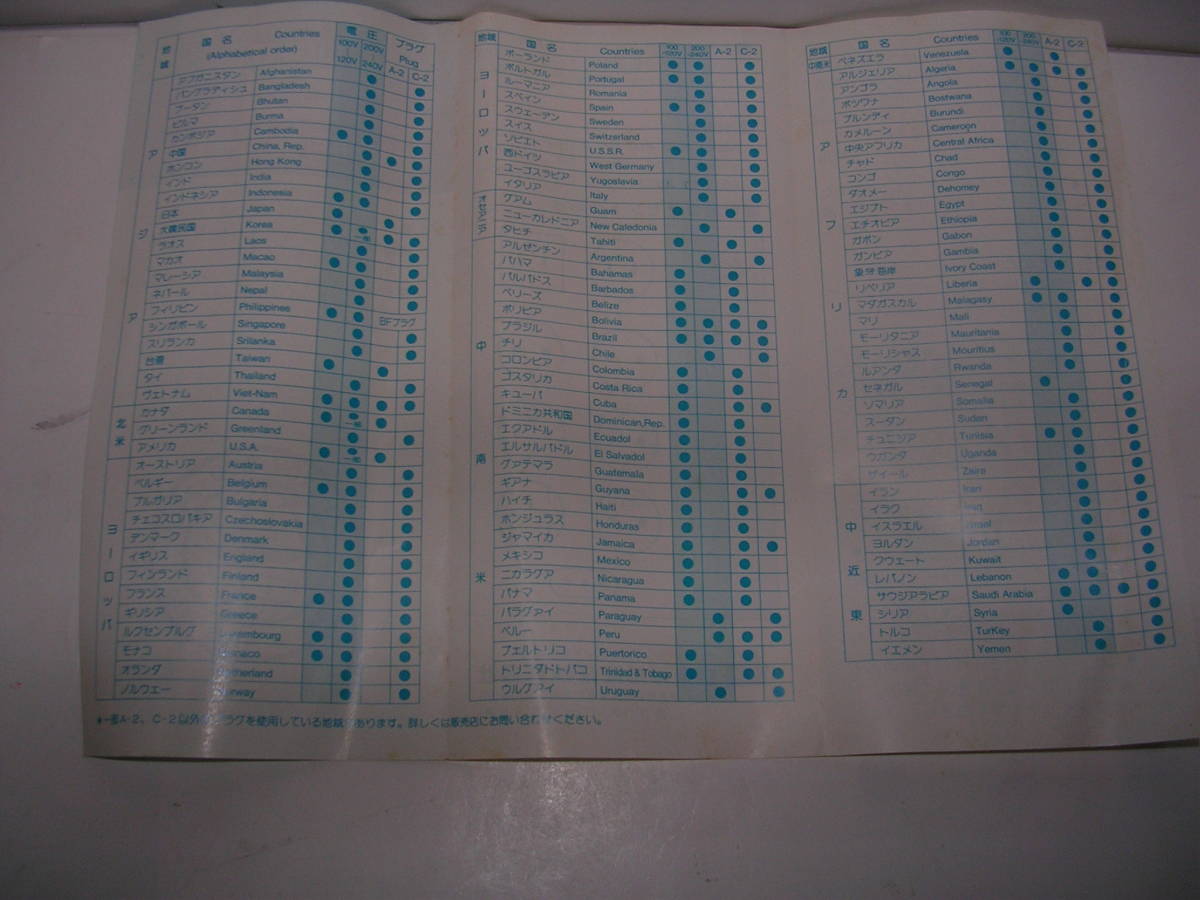 地域 国名 Countries 電圧 プラグ
(Alphabetical order) 100V 200V Plug
120V 240V A-2 C-2
アジア
アフガニスタン Afghanistan
バングラディシュ Bangladesh
ブータン Bhutan
ビルマ Burma
カンボジア Cambodia
中国 China, Rep.
ホンコン Hong Kong
インド India
インドネシア Indonesia
日本 Japan
大韓民国 Korea
ラオス Laos
マカオ Macao
マレーシア Malaysia
ネパール Nepal
フィリピン Philippines
シンガポール Singapore BFプラグ
スリランカ Srilanka
台湾 Taiwan
タイ Thailand
ヴェトナム Viet-Nam
北米
カナダ Canada
グリーンランド Greenland
アメリカ U.S.A.
ヨーロッパ
オーストリア Austria
ベルギー Belgium
ブルガリア Bulgaria
チェコスロバキア Czechoslovakia
デンマーク Denmark
イギリス England
フィンランド Finland
フランス France
ギリシア Greece
ルクセンブルグ Luxembourg
モナコ Monaco
オランダ Netherland
ノルウェー Norway
地域 国名 Countries 100-120V 200-240V A-2 C-2
ヨーロッパ
ポーランド Poland
ポルトガル Portugal
ルーマニア Romania
スペイン Spain
スウェーデン Sweden
スイス Switzerland
ソビエト U.S.S.R.
西ドイツ West Germany
ユーゴスラビア Yugoslavia
イタリア Italy
オセアニア
グアム Guam
ニューカレドニア New Caledonia
タヒチ Tahiti
中南米
アルゼンチン Argentina
バハマ Bahamas
バルバドス Barbados
ベリーズ Belize
ボリビア Bolivia
ブラジル Brazil
チリ Chile
コロンビア Colombia
コスタリカ Costa Rica
キューバ Cuba
ドミニカ共和国 Dominican,Rep.
エクアドル Ecuador
エルサルバドル El Salvador
グァテマラ Guatemala
ギアナ Guyana
ハイチ Haiti
ホンジュラス Honduras
ジャマイカ Jamaica
メキシコ Mexico
ニカラグア Nicaragua
パナマ Panama
パラグァイ Paraguay
ペルー Peru
プェルトリコ Puertorico
トリニダドトバコ Trinidad & Tobago
ウルグアイ Uruguay
地域 国名 Countries 100-120V 200-240V A-2 C-2
中南米 ベネズエラ Venezuela
アフリカ
アルジェリア Algeria
アンゴラ Angola
ボツワナ Bostwana
ブルンディ Burundi
カメルーン Cameroon
中央アフリカ Central Africa
チャド Chad
コンゴ Congo
ダオメー Dehomey
エジプト Egypt
エチオピア Ethiopia
ガボン Gabon
ガンビア Gambia
象牙海岸 Ivory Coast
リベリア Liberia
マダガスカル Malagasy
マリ Mali
モーリタニア Mauritania
モーリシャス Mouritius
ルアンダ Rwanda
セネガル Senegal
ソマリア Somalia
スーダン Sudan
チュニジア Tunisia
ウガンダ Uganda
ザイール Zaire
中近東
イラン Iran
イラク Iraq
イスラエル Israel
ヨルダン Jordan
クウェート Kuwait
レバノン Lebanon
サウジアラビア Saudi Arabia
シリア Syria
トルコ TurKey
イエメン Yemen
*一部A-2、C-2以外のプラグを使用している地域があります。詳しくは販売店にお問い合わせください。